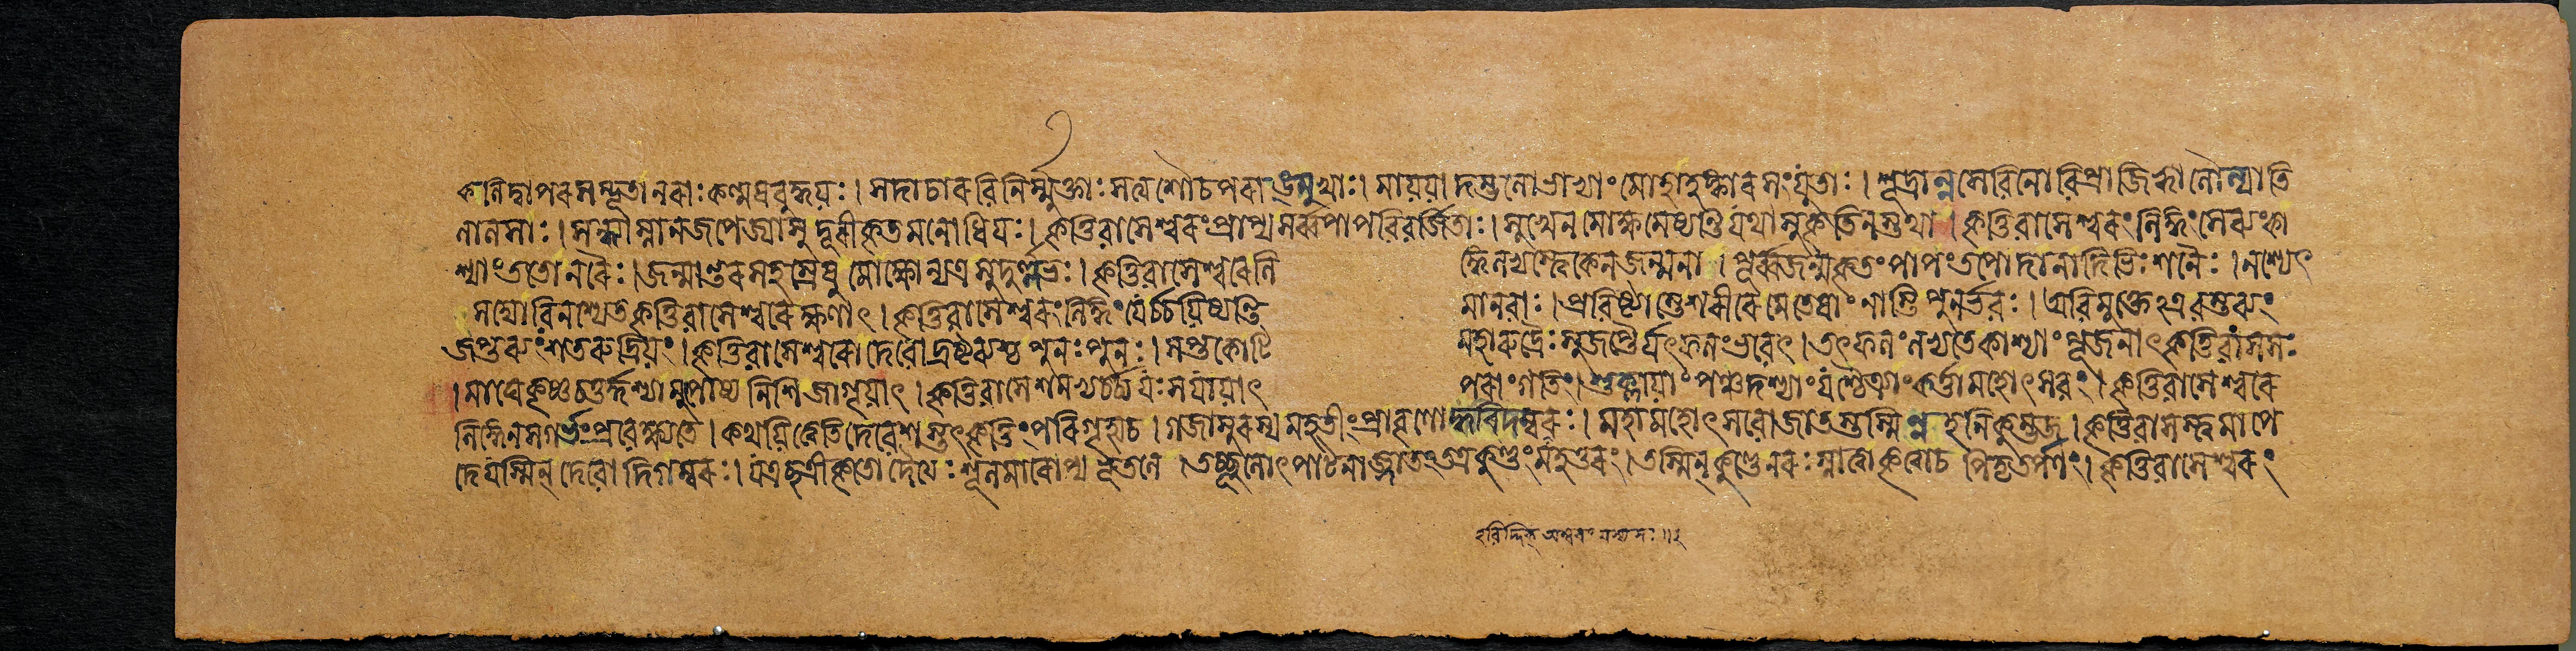 কলিদ্বাপরসম্ভূতা নরাঃ কল্মষবুদ্ধয়ঃ। সদাচারবিনির্ম্মুক্তাঃ সত্যশৌচপরাঙ্মুখাঃ। মায়য়া দম্ভলোভাভ্যাং মোহাহঙ্কারসংযুতাঃ। শূদ্রান্নসেবিনো বিপ্রা জিহ্মা লৌল্যাতি
লালসাঃ। সন্ধ্যাস্নানজপেজ্যাসু দূরীকৃতমনোধিয়ঃ। কৃত্তিবাসেশ্বরং প্রাপ্য সর্ব্বপাপবিবর্জিতাঃ। সুখেন মোক্ষমেষ্যন্তি যথা সুকৃতিনস্তথা। কৃত্তিবাসেশ্বরং লিঙ্গং সেব্যং কা
শ্যাং ততো নরৈঃ। জন্মান্তরসহস্রেষু মোক্ষোন্যত্র সুদুর্ল্লভঃ। কৃত্তিবাসেশ্বরে লি ঙ্গে লভ্যস্ত্বেকেন জন্মনা। পূর্ব্বজন্মকৃতং পাপং তপোদানাদিভিঃ শনৈঃ। নশ্যেৎ
সদ্যো বিনশ্যেত কৃত্তিবাসেশ্বরেক্ষণাৎ। কৃত্তিবাসেশ্বরং লিঙ্গং যের্চ্চয়িষ্যন্তি মানবাঃ। প্রবিষ্টাস্তে শরীরে মে তেষাং নাস্তি পুনর্ভবঃ। অবিমুক্তেত্র বস্তব্যং
জপ্তব্যং শতরুদ্রিয়ং। কৃত্তিবাসেশ্বরো দেবো দ্রষ্টব্যশ্চ পুনঃ পুনঃ। সপ্তকোটি মহারুদ্রৈঃ সুজপ্তৈর্যৎফলং ভবেৎ। তৎফলং লভ্যতে কাশ্যাং পূজনাৎ কৃত্তিবাসসঃ
। মাঘে কৃষ্ণচতুর্দ্দশ্যামুপোষ্য নিশি জাগৃয়াৎ। কৃত্তিবাসেশমভ্যর্চ্চ্য যঃ স যায়াৎ পরাং গতিং। শুক্লায়াং পঞ্চদশ্যাং যশ্চৈত্র্যাং কর্ত্তা মহোৎসবং। কৃত্তিবাসেশ্বরে
লিঙ্গে ন স গর্ভং প্রবেক্ষ্যতে। কথয়িত্বেতি দেবেশস্তৎকৃত্তিং পরিগৃহ্য চ। গজাসুরস্য মহতীং প্রাবৃণোদ্ধরিদম্বরঃ। মহামহোৎসবো জাতস্তস্মিন্নহনি কুম্ভজ। কৃত্তিবাসস্ত্বমাপে
দে যস্মিন্ দেবো দিগম্বরঃ। যত্র ছত্রীকৃতো দৈত্যঃ শূলমারোপ্য ভূতলে। তচ্ছূলোৎপাটনাজ্জাতং তত্র কুণ্ডং মহত্তরং। তস্মিন্ কুণ্ডে নরঃ স্নাত্বা কৃত্বা চ পিতৃতর্পণং। কৃত্তিবাসেশ্বরং